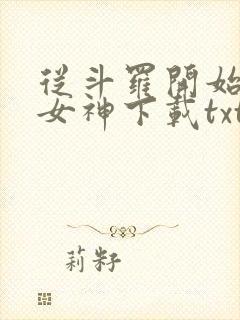 從斗羅開始
女神下載txt
莉籽